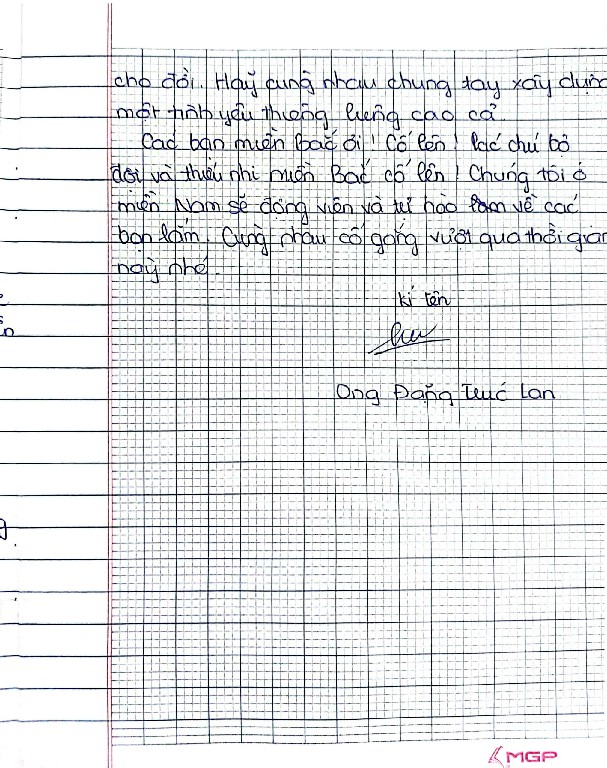 cho đời. Hãy cùng nhau chung tay xây dựng
một tình yêu thương lưng cao cả.
Các bạn miền Bắc ơi! Cố lên! Các chú bộ
đội và thiếu nhi miền Bắc cố lên! Chúng tôi ở
miền Nam sẽ động viên và tự hào lắm về các
bạn lắm. Cùng nhau cố gắng vượt qua thời gian
này nhé.
kí tên
Ong Đặng Trúc Lan
MGP